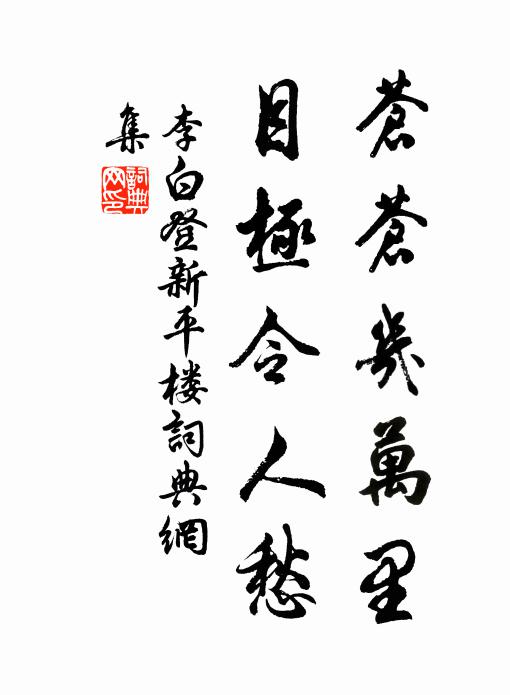 蒼蒼幾萬里
目極令人愁
李白登新平楼詞典網
集
詞典网印